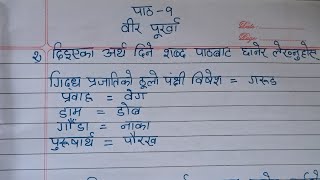 पाठ-१
वीर पूर्खा
Date
Page
२) दिइएका अर्थ दिने शब्द पाठबाट छानेर लेख्नुहोस्
गिद्ध प्रजातिको ठूलो पंक्षी विषेश = गरूड
प्रवाह = वेग
डाम = डोब
गौंडा = नाका
पुरूषार्थ = पौरख